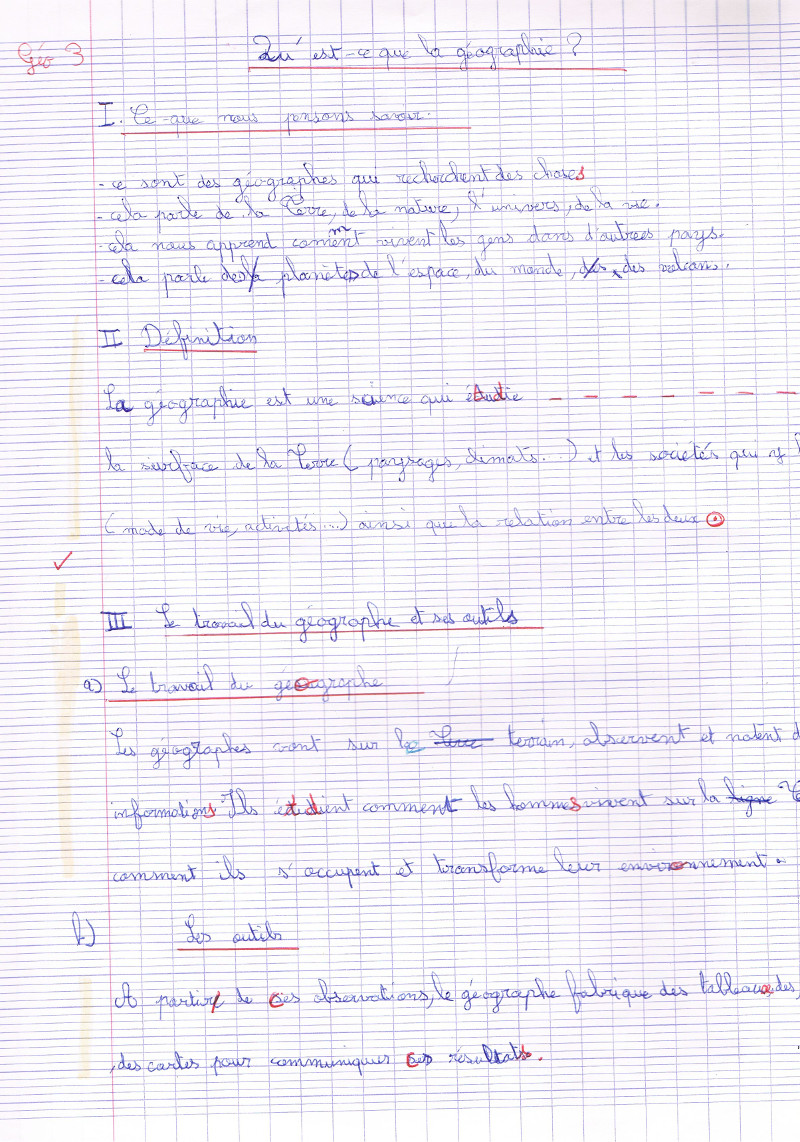 Géo 3
Qu'est-ce que la géographie ?
I. Ce que nous pensons savoir.
- ce sont des géographes qui recherchent des choses
- cela parle de la Terre, de la nature, l'univers, de la vie.
- cela nous apprend comment vivent les gens dans d'autres pays.
- cela parle des planètes de l'espace, du monde, des volcans.
II Définition
La géographie est une science qui étudie
la surface de la Terre ( paysages, climats...) et les sociétés qui y
( mode de vie, activités ...) ainsi que la relation entre les deux.
III Le travail du géographe et ses outils
a) Le travail du géographe
Les géographes vont sur le terrain, observent et notent
informations Ils étudient comment les hommes vivent sur la ligne
comment ils s'occupent et transforme leur environnement.
b) Les outils
A partir de ces observations, le géographe fabrique des tableaux, des
, des cartes pour communiquer ces résultats.